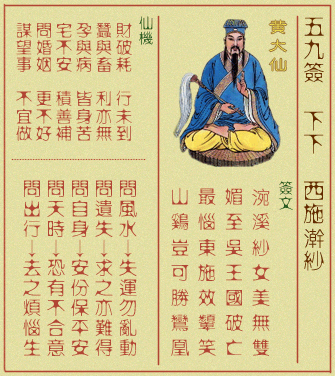 五九簽 下下 西施澣紗
黄大仙
簽文
浣溪紗女美無雙
媚至吳王國破亡
最惱東施效顰笑
山鷄豈可勝鸞凰
仙機
財破耗 行未到
蠶與畜 利亦無
孕與病 皆身苦
宅不安 積善補
問婚姻 更不好
謀望事 不宜做
問風水→失運勿亂動
問遺失→求之亦難得
問自身→安份保平安
問天時→恐有不合意
問出行→去之煩惱生